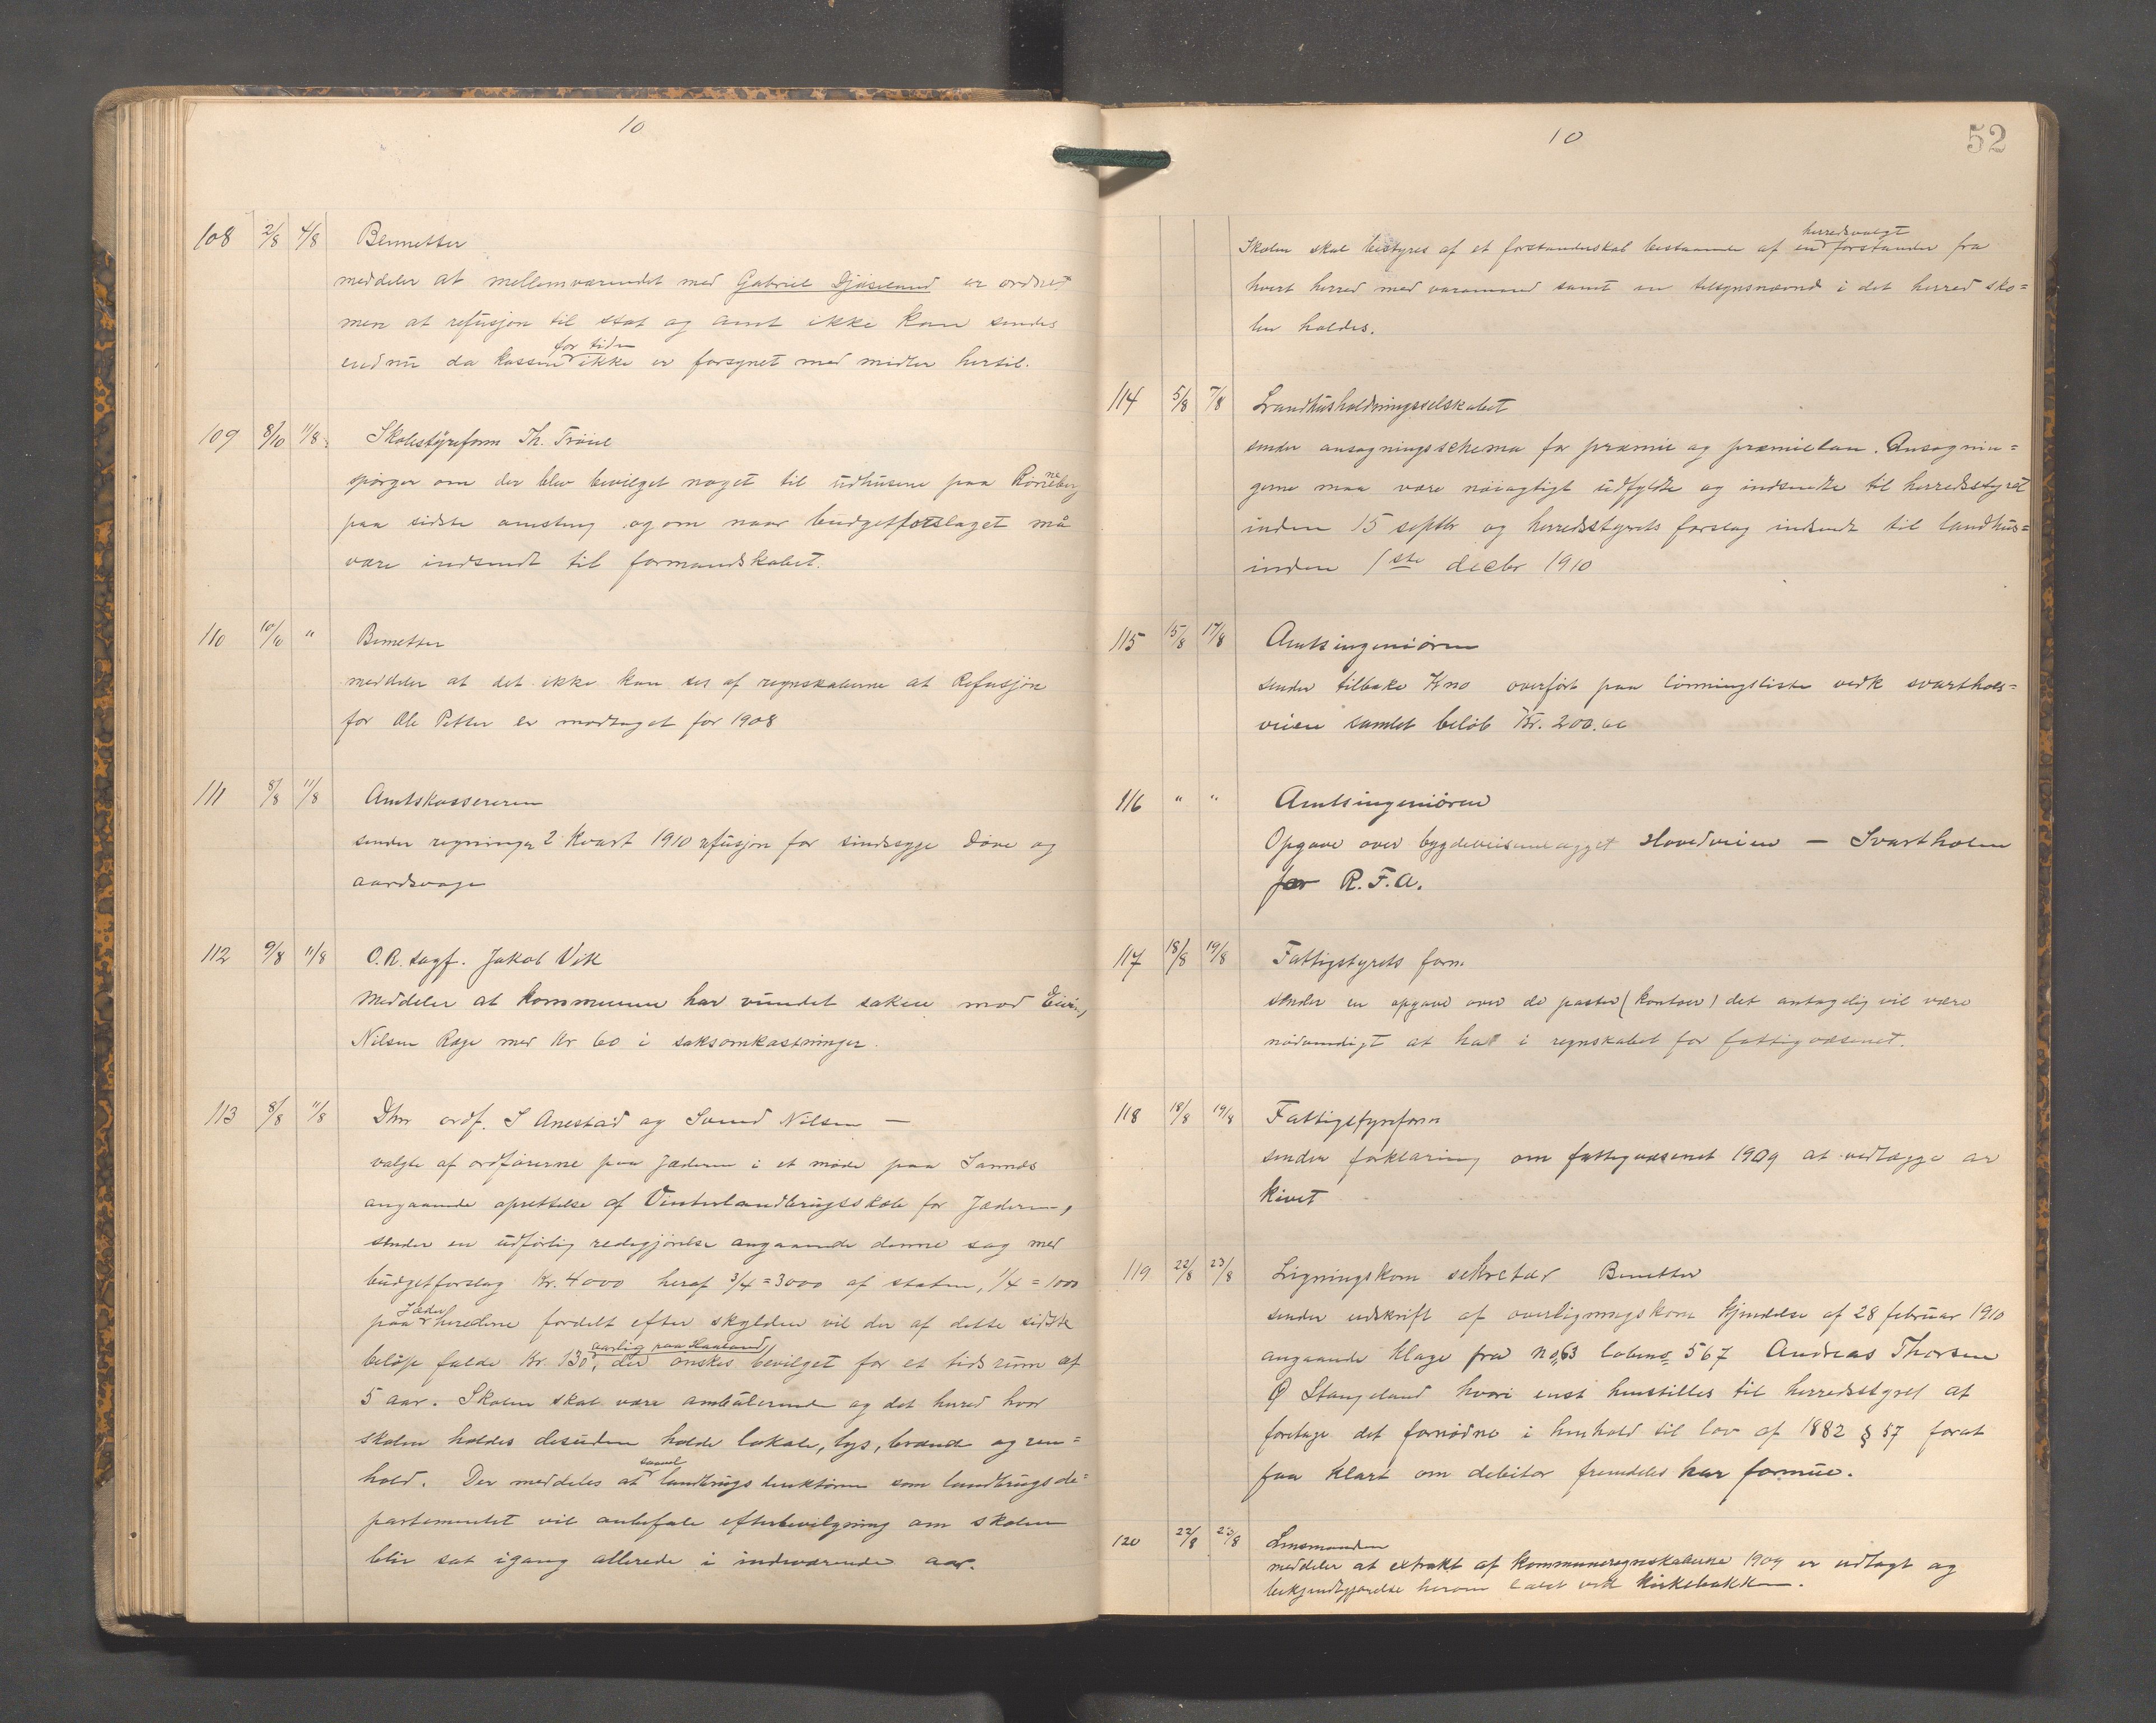 10
108 2/8 4/8 Bennetter
meddeler at mellemværendet med Gabriel Djäseland er ordnet
men at refusjon til stat og amt ikke kan sendes
for tiden
endnu da kassen ikke er forsynet med midler hertil.
109 8/10 11/8 Skolestyreform Th. Tröine
spörger om der blev bevilget noget til udhusene paa Rönneberg
paa sidste amsting og om naar budgetforslaget må
være indsendt til formandskabet.
110 10/10 " Bennetter
meddeler at det ikke kan ses af regnskaberne at Refusjon
for Ole Petter er modtaget for 1908
111 8/8 11/8 Amtskassereren
sender regninger 2 kvart 1910 refusjon for sindssyge döve og
aandsvage
112 9/8 11/8 O.R. sagf. Jakob Vik
meddeler at kommunen har vundet saken mod
Nilsen Rage med Kr 60 i saksomkostninger.
113 8/8 11/8 Dhrr ordf. S Anestad og Svend Nilsen —
valgte af ordförerne paa Jæderen i et möde paa Sannds
angaaende oprettelse af Vinterlandbrugsskole for Jæderen,
sender en udförlig redegjörelse angaaende denne sag med
budgetforslag Kr. 4000 heraf 3/4 = 3000 af staten, 1/4 = 1000
Jæder
paa herederne fordelt efter skylden vil der af dette sidste
aarlig paa Haaland,
belöp falde Kr. 130, der önskes bevilget for et tidsrum af
5 aar. Skolen skal være ambulerende og det herred hvor
skolen holdes desuden holde lokale, lys, brænde og ren=
saavel
hold. Der meddeles at landbrugsdirektören som landbrugsde=
partementet vil anbefale efterbevilgning om skolen
blir sat igang allerede i indeværende aar.
10
52
herredsvalgt
Skolen skal bestyres af et forstanderskab bestaaende af en forstander fra
hvert herred med varamand samt en tilsynsnævnd i det herred sko=
len holdes.
114 5/8 7/8 Landhusholdningsselskabet
sender ansøgningsschema for præmie og præmielaan. Ansøgnin=
gerne maa være nöiagtigt udfyldte og indsendte til herredsstyret
inden 15 septbr og herredsstyrets forslag indsendt til landhus=
inden 1ste decbr 1910
115 15/8 17/8 Amtsingeniören
sender tilbake Kno overfört paa lönningsliste vedk svarthols=
veien samlet belöb Kr. 200.00
116 " " Amtsingeniören
Opgave over bygdeveisanlægget Hovedveien — Svartholen
for R.F.A.
117 18/8 19/8 Fattigstyrets form.
sender en opgave over de poster (kontoer) det antagelig vil være
nödvendigt at ha i regnskabet for fattigvæsenet.
118 18/8 19/8 Fattigstyreform
sender forklaring om fattigvæsenet 1909 at vedlægge ar
kivet
119 22/8 23/8 Ligningskom sekretær Bennetter
sender udskrift af overligningskom kjendelse af 28 februar 1910
angaaende klage fra No 63 löbeno 567 Andreas Thorsen
Ø Stangeland hvori enst henstilles til herredsstyret at
foretage det fornödne i henhold til lov af 1882 § 57 forat
faa klart om debitor fremdeles har formue.
120 22/8 23/8 Lensmanden
meddeler at extrakt af kommuneregnskaberne 1909 er udlagt og
bekjendtgjörelse herom læst ved kirkebakken.